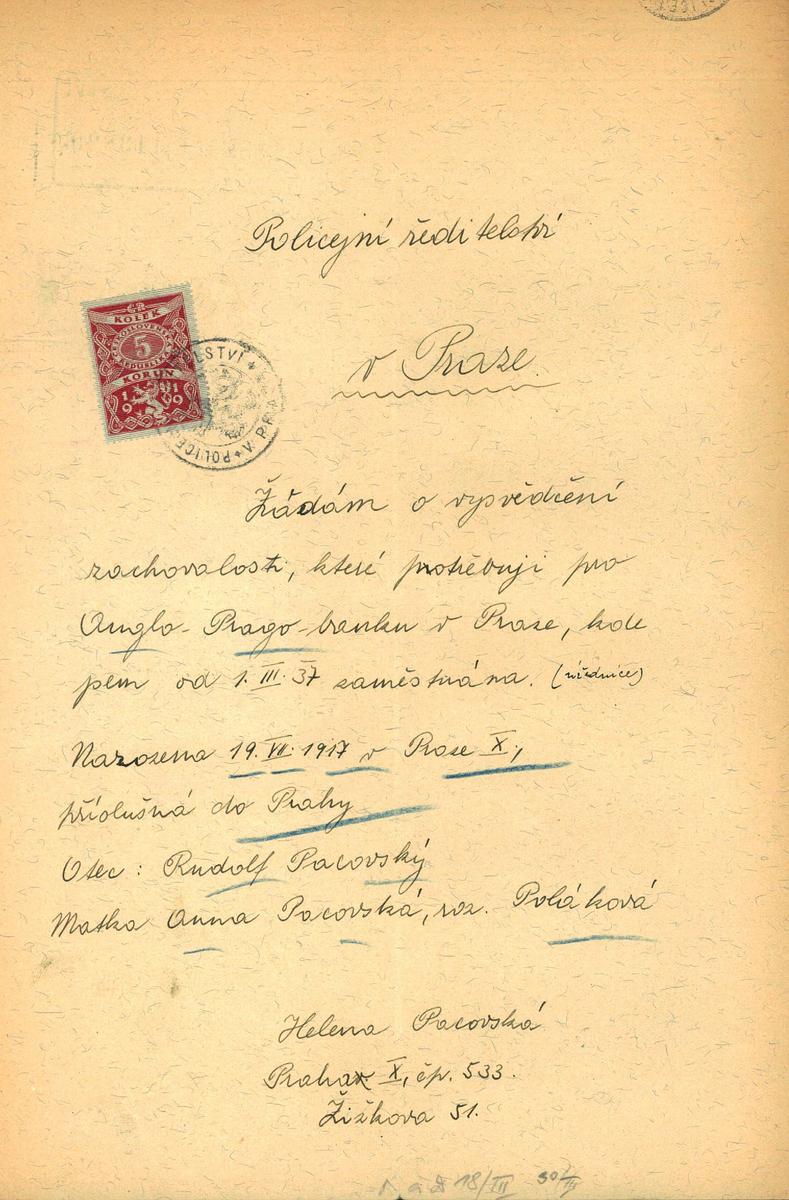 Policejní ředitelství
v Praze.
ČR
KOLEK
ČESKOSLOVENSKÁ
REPUBLIKA
5
KORUN
19 19
POLICEJNÍ ŘEDITELSTVÍ V PRAZE
Žádám o vysvědčení
zachovalosti, které potřebuji pro
Anglo-Prago-banku v Praze, kde
jsem od 1. III. 37 zaměstnána. (úřednice)
Narozena 19. VII. 1917 v Praze X.,
příslušná do Prahy
Otec: Rudolf Pacovský
Matka Anna Pacovská, roz. Poláková
Helena Pacovská
Praha X, čp. 533.
Žižkova 51.
18/III 30/III